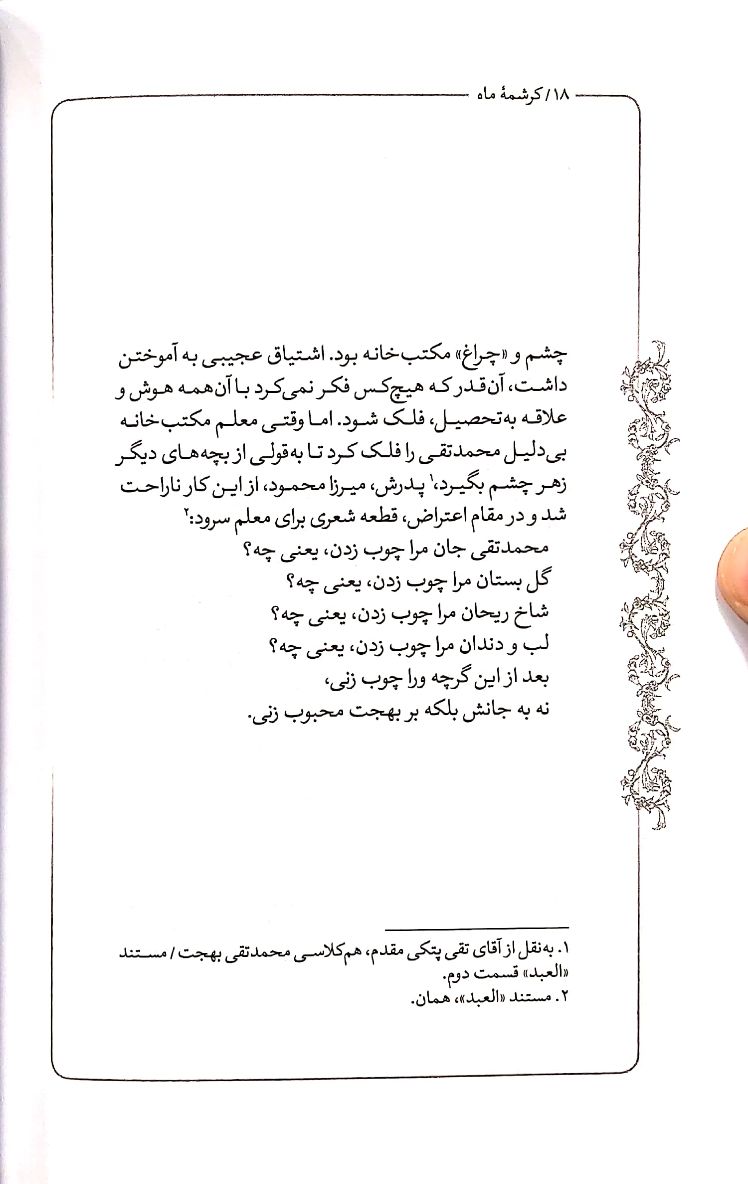 ۱۸/ کرشمهٔ ماه
چشم و «چراغ» مکتب‌خانه بود. اشتیاق عجیبی به آموختن
داشت، آن‌قدر که هیچ‌کس فکر نمی‌کرد با آن‌همه هوش و
علاقه به‌تحصیل، فلک شود. اما وقتی معلم مکتب‌خانه
بی‌دلیل محمدتقی را فلک کرد تا به‌قولی از بچه‌های دیگر
زهر چشم بگیرد،۱ پدرش، میرزا محمود، از این کار ناراحت
شد و در مقام اعتراض، قطعه شعری برای معلم سرود:۲
محمدتقی جان مرا چوب زدن، یعنی چه؟
گل بستان مرا چوب زدن، یعنی چه؟
شاخ ریحان مرا چوب زدن، یعنی چه؟
لب و دندان مرا چوب زدن، یعنی چه؟
بعد از این گرچه ورا چوب زنی،
نه به جانش بلکه بر بهجت محبوب زنی.
۱. به‌نقل از آقای تقی پتکی مقدم، هم‌کلاسی محمدتقی بهجت / مستند
«العبد» قسمت دوم.
۲. مستند «العبد»، همان.